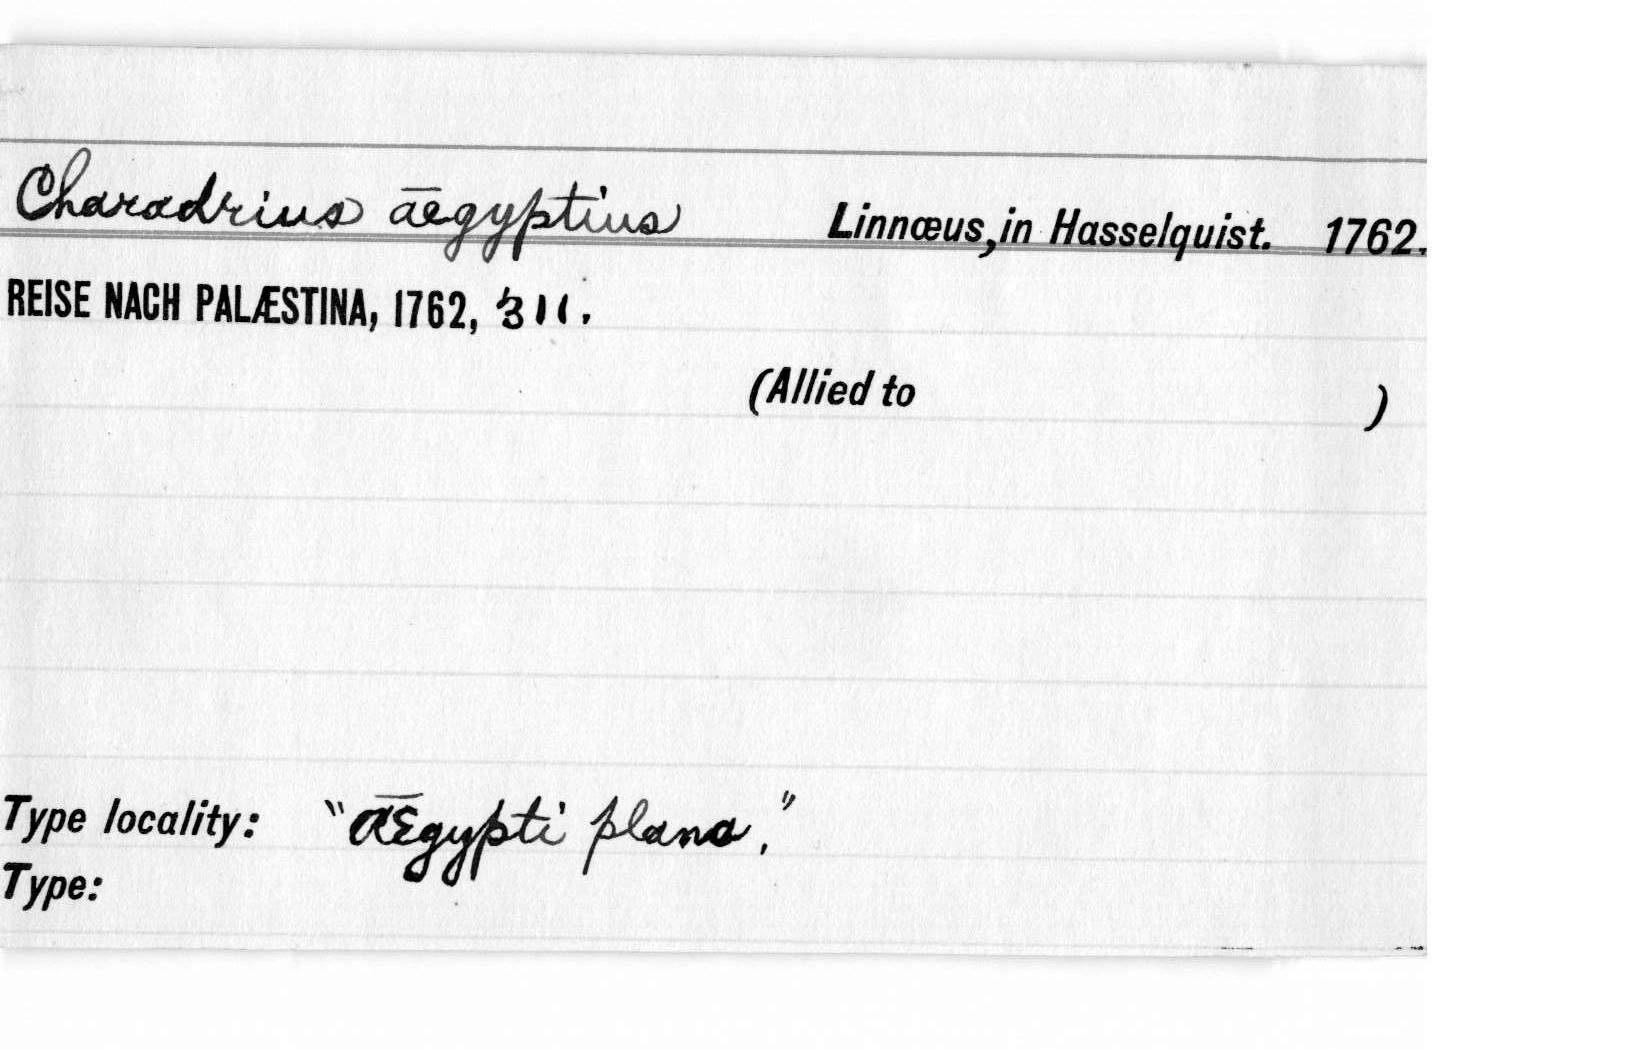 Charadrius aegyptius Linnæus, in Hasselquist. 1762.
REISE NACH PALÆSTINA, 1762, 311.
(Allied to )
Type locality: "Aegypti plana."
Type: